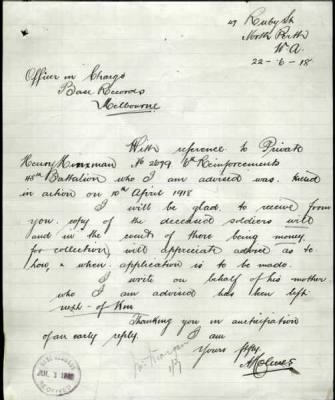 Ruby St
North Perth
W.A.
22-6-18
Officer in Charge
Base Records
Melbourne
With reference to Private
Henry No 2679 6th Reinforcements
48th Battalion who I am advised was killed
in action on 10th April 1918
I will be glad to receive from
you copy of the deceased soldiers will
and in the event of there being money
for collection will appreciate advice as to
how, & when application is to be made.
I write on behalf of his mother
who I am advised has been left
next-of Kin
Thanking you in anticipation
of an early reply. I am
Yours ffy,
RECEIVED